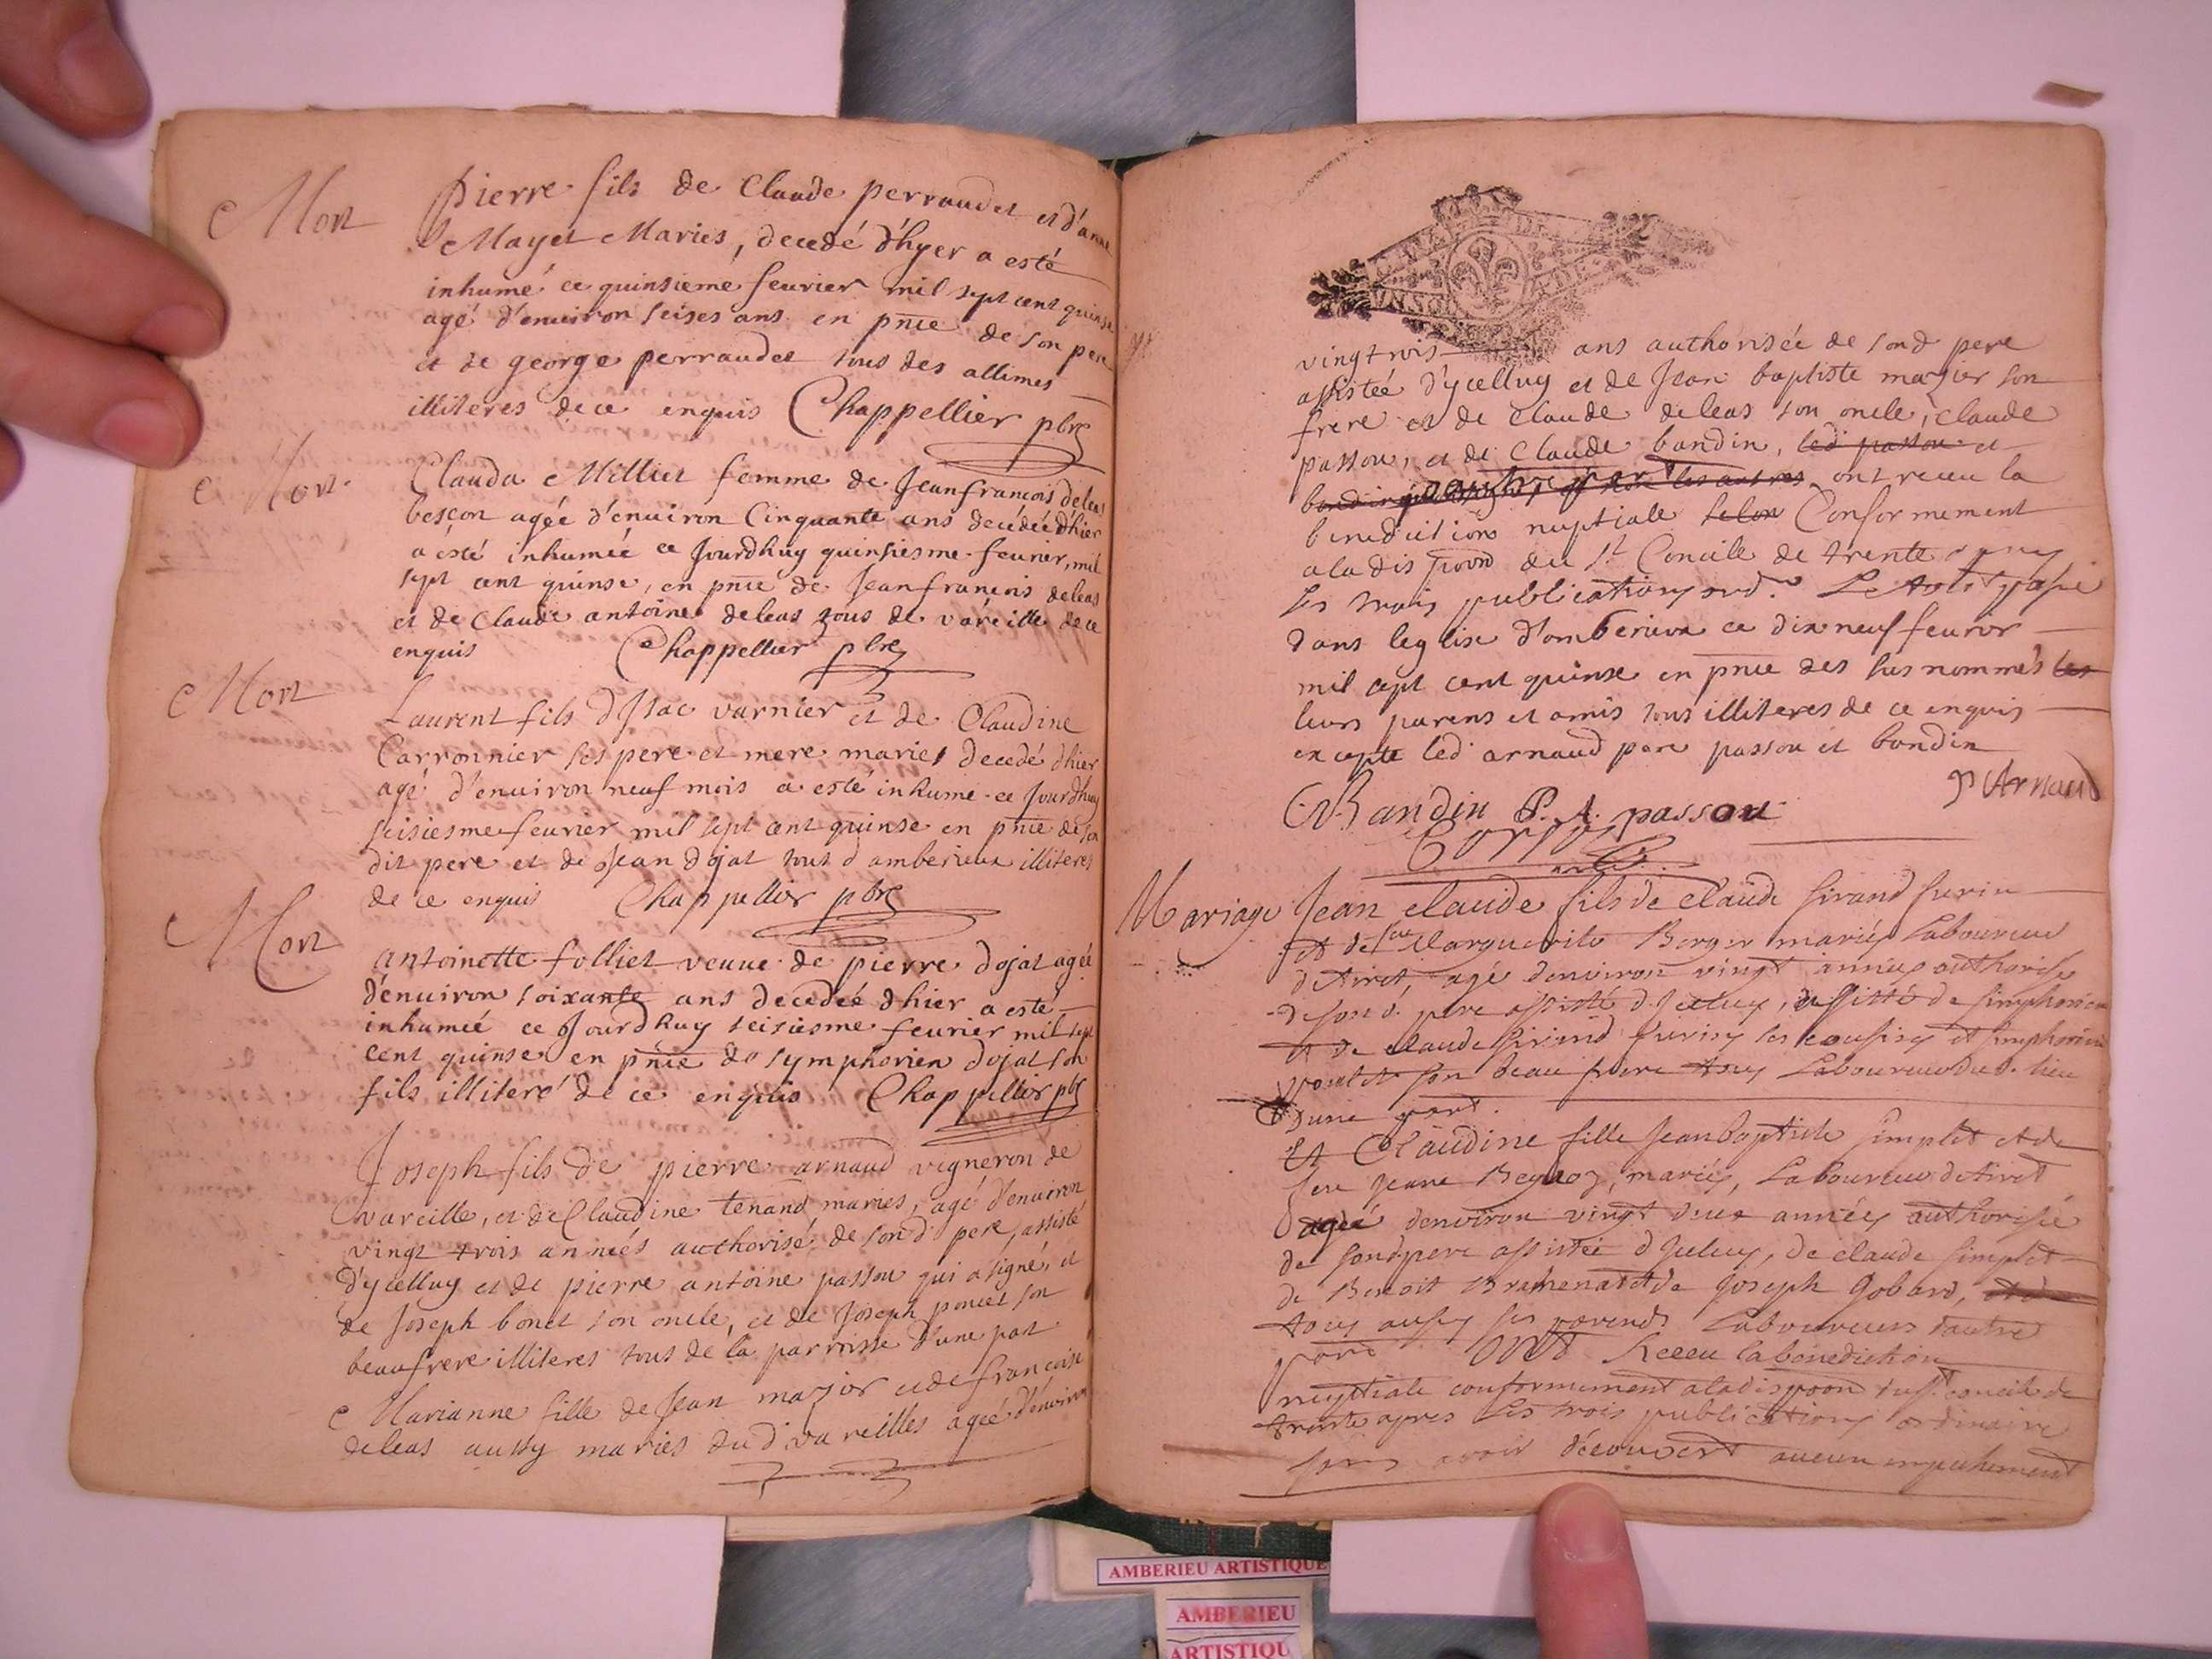 Mort
Pierre fils de Claude perraudet et d'anne
Mayet Mariés, decedé d'hyer a esté
inhumé ce quinsieme feurier mil sept cent quinse
agé d'enuiron seises ans en pnce de son pere
et de george perraudet tous des allimes
illiteres de ce enquis Chappellier pbre
Mort
Clauda Milliet femme de Jeanfrancois deleas
bescon agée d'enuiron Cinquante ans decedée d'hier
a esté inhumée ce Jourdhuy quinsiesme feurier, mil
sept cent quinse, en pnce de Jeanfrancois deleas
et de Claude antoine deleas tous de vareille de ce
enquis Chappellier pbre
Mort
Laurent fils d'Isac varnier et de Claudine
Carronnier ses pere et mere mariés decedé dhier
agé d'enuiron neuf mois a esté inhumé ce Jourdhuy
seisiesme feurier mil sept cent quinse en pnce de son
dit pere et de Jean dojat tous d'amberieux illiteres
de ce enquis Chappellier pbre
Mort
Antoinette folliet veuue de pierre dojat agée
d'enuiron soixante ans decedée dhier a esté
inhumée ce Jourdhuy seisiesme feurier mil sept
cent quinse en pnce de symphorien dojat son
fils illiteré de ce enquis Chappellier pbr
Joseph fils de pierre arnaud vigneron de
vareille, et de Claudine tenand mariés, agé d'enuiron
vingt trois années authorisé de sond pere, assisté
d'ycelluy et de pierre antoine passou qui a signé, et
de Joseph bonet son oncle, et de Joseph poncet son
beaufrere illiteres tous de la parroisse d'une part
Marianne fille de Jean major et de francoise
deleas aussy mariés dud. vareilles agée d'enuiron
vingtrois ans authorisée de sond pere
assistée d'ycelluy et de Jean baptiste major son
frere et de Claude deleas son oncle, Claude
passou, et de Claude bandin, led passou et
bandin les autres ont receu la
benediction nuptiale selon Conformement
a la dispoon du St Concile de trente apres
les trois publications ord.
dans leglise d'amberieux ce dix neuf feurier
mil sept cent quinse en pnce des sus nommés les
leurs parens et amis tous illiteres de ce enquis
excepte led arnaud pere passou et bandin
P Arnaud
C Bandin P. A. passou
Mariage
Jean claude fils de claude sirand furin
et de feue Marguerite Berger mariés Laboureur
d'Tiret, agé denviron vingt années authorisé
de sond. pere assisté d'Jceluy, assisté de simphorien
et de claude sirand furin ses cousins et simphorien
son beau frere tous Laboureurs dud. lieu
d'une part.
Et Claudine fille Jean baptiste simplet et de
feue Jeane mariés, Laboureur de tiret
agée denviron vingt deux années authorisé
de sond pere assistée d'Jceluy, de claude simplet
de Benoit Bramenat et de Joseph Gobard,
tous aussy ses parends Laboureurs d'autre
part ont Receu la benediction
nuptiale conformement a la dispoon du st. concile de
trente apres les trois publications ordinaire
sans avoir découvert aucun empechement
AMBERIEU ARTISTIQUE
AMBERIEU
ARTISTIQU